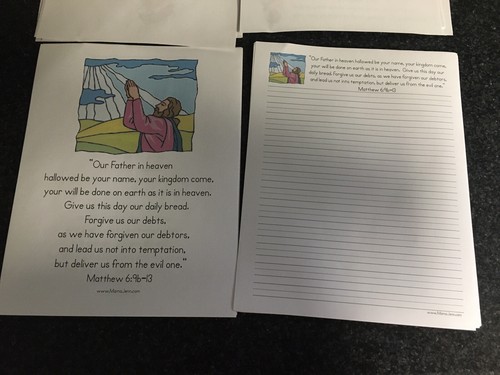 "Our Father in heaven
hallowed be your name, your kingdom come,
your will be done on earth as it is in heaven.
Give us this day our daily bread.
Forgive us our debts,
as we have forgiven our debtors,
and lead us not into temptation,
but deliver us from the evil one."
Matthew 6:9b-13
"Our Father in heaven hallowed be your name, your kingdom come,
your will be done on earth as it is in heaven. Give us this day our
daily bread. Forgive us our debts, as we have forgiven our debtors,
and lead us not into temptation, but deliver us from the evil one."
Matthew 6:9b-13